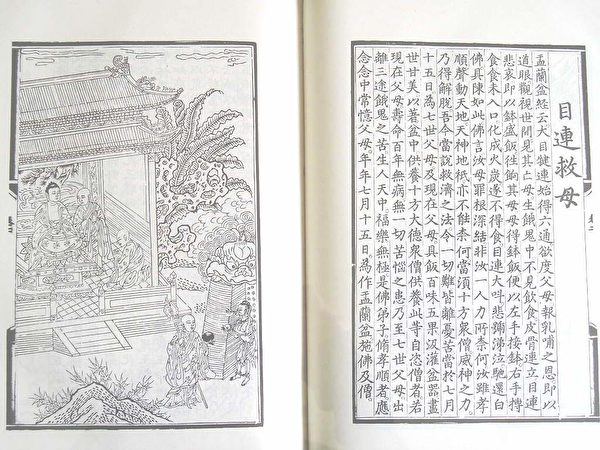 目連救母
盂蘭盆經云大目犍連始得六通欲度父母報乳哺之恩即以
道眼觀視世間見其亡母生餓鬼中不見飲食皮骨連立目連
悲哀即以鉢盛飯往餉其母母得鉢飯便以左手接鉢右手摶
食食未入口化成火炭遂不得食目連大叫悲踊涕泣馳還白
佛具陳如此佛言汝母罪根深結非汝一人力所柰何汝雖孝
順聲動天地天神地祇亦不能柰何當須十方眾僧威神之力
乃得解脫吾今當說救濟之法令一切難皆離憂苦當於七月
十五日為七世父母及現在父母具飯百味五果汲灌盆器盡
世甘美以著盆中供養十方大德眾僧供養此等自恣僧者若
現在父母壽命百年無病無一切苦惱之患乃至七世父母出
離三途餓鬼之苦生人天中福樂無極是佛弟子脩孝順者應
念念中常憶父母年年七月十五日為作盂蘭盆施佛及僧